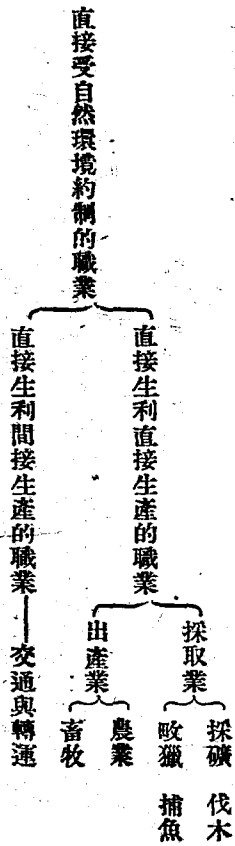 直接受自然環境約制的職業
直接生利直接生產的職業
採取業
採礦 伐木
畋獵 捕魚
出產業
農業
畜牧
直接生利間接生產的職業——交通與轉運